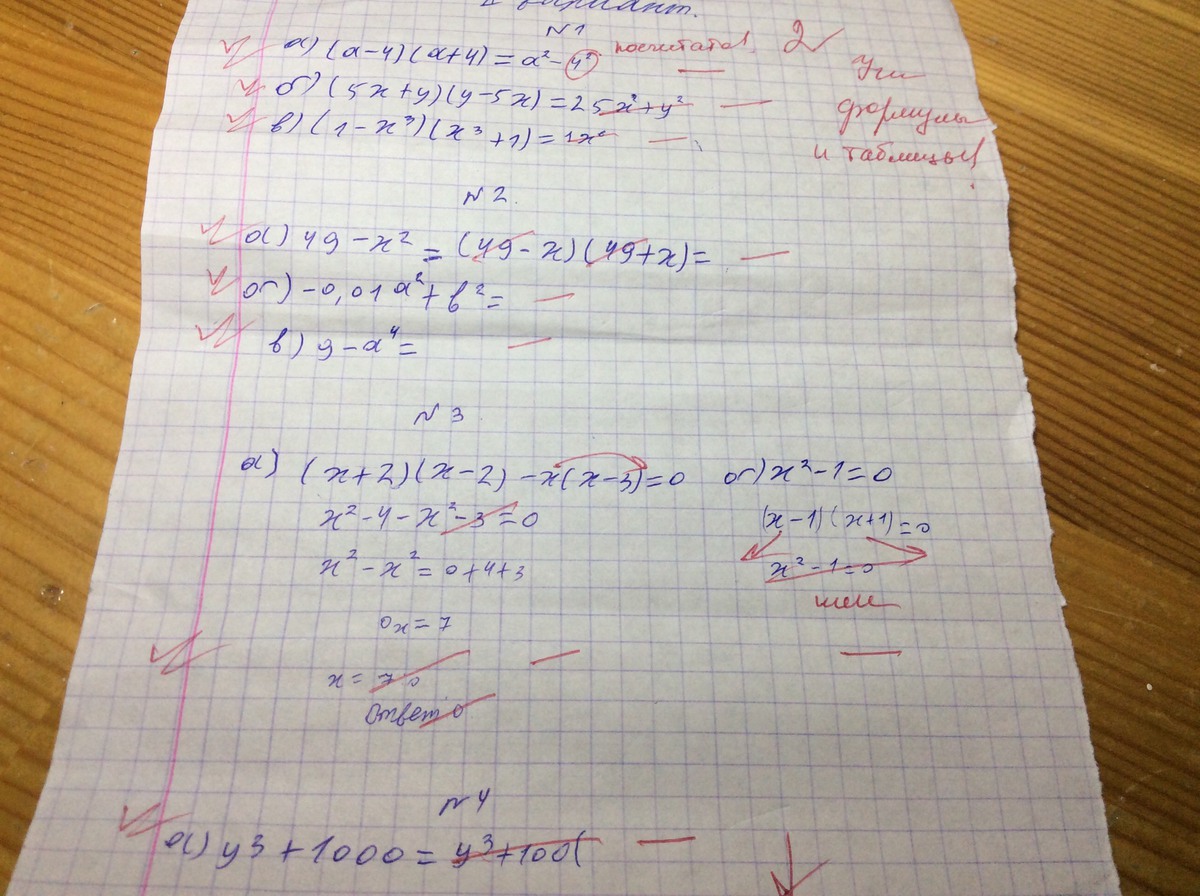 вариант.
N 1
а) (a-4)(a+4) = a² - 4² посчитать! 2
б) (5x+y)(y-5x) = 25x²+y²
в) (1-x³)(x³+1) = 1x⁶
Учи
формулы
и таблицы!
N 2.
а) 49 - x² = (49-x)(49+x) =
б) -0,01a²+b² =
в) 9-a⁴ =
N 3
а) (x+2)(x-2) -x(x-3)=0 б) x²-1=0
x²-4-x²-3=0 (x-1)(x+1)=0
x²-x²=0+4+3 x²-1=0
0x=7
x= 7 0
Ответ 0
N 4
а) y³+1000 = y³+100(